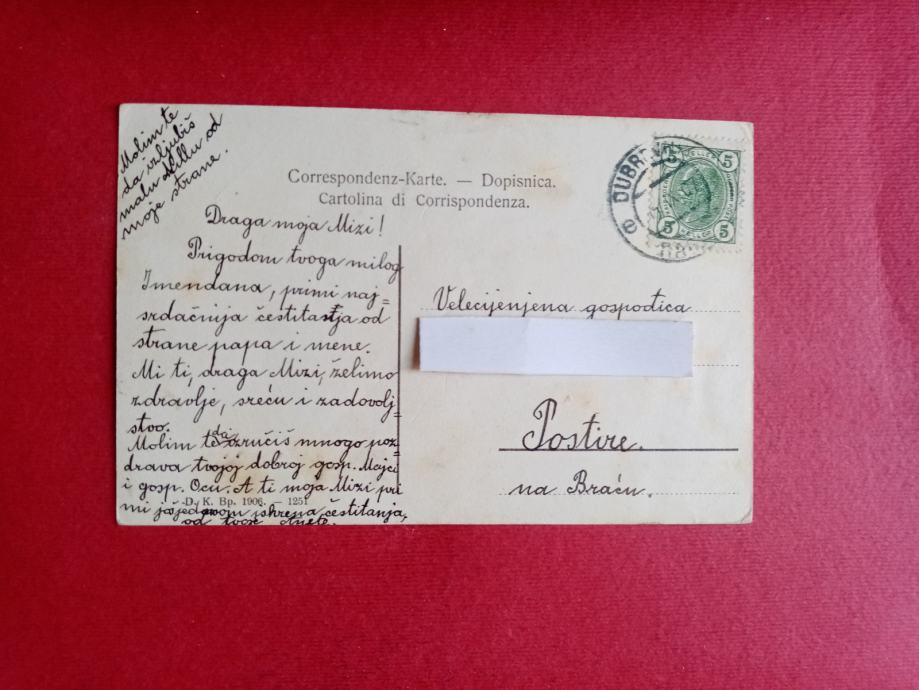 Molim te
da izljubiš
malu Millu od
moje strane.
Correspondenz-Karte. — Dopisnica.
Cartolina di Corrispondenza.
Draga moja Mizi!
Prigodom tvoga milog
Imendana, primi naj=
srdačnija čestitastja od
strane papa i mene.
Mi ti, draga Mizi, želimo
zdravlje, sreću i zadovolj=
stvo.
Molim te da izručiš mnogo poz=
drava tvojoj dobroj gosp. Majci
i gosp. Ocu. A ti moja Mizi pri
D. K. Bp. 1906. — 1251
mi još jednom iskrena čestitanja,
od tvoje Anete.
DUBR
5 HELLER 5
5 HELLER 5
Velecijenjena gospodica
Postire.
na Braću.